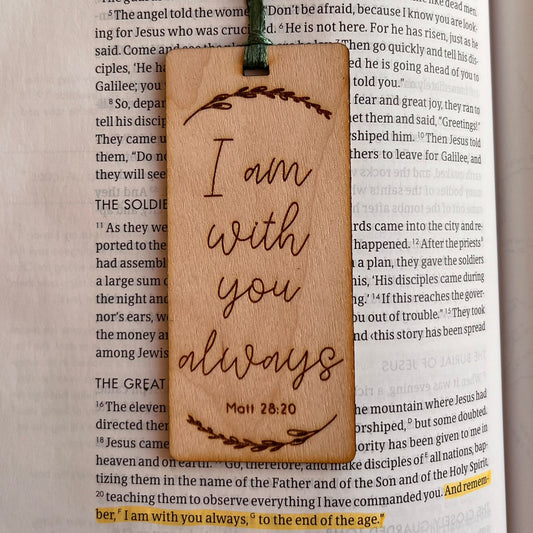 like dead men.
⁵The angel told the women, "Don't be afraid, because I know you are look-
ing for Jesus who was crucified. ⁶He is not here. For he has risen, just as he
said. Come and see the place
Then go quickly and tell his dis-
ciples, 'He ha
ed he is going ahead of you to
Galilee; you
told you."
⁸So, depar
fear and great joy, they ran to
tell his discip
et them and said, "Greetings!"
They came u
shiped him. ¹⁰Then Jesus told
them, "Do n
thers to leave for Galilee, and
they will see
THE SOLDIE
¹¹As they we
rds came into the city and re-
ported to the
happened. ¹²After the priests
had assemble
a plan, they gave the soldiers
a large sum o
his, 'His disciples came during
the night and
ng.' ¹⁴If this reaches the gover-
nor's ears, we
ou out of trouble." ¹⁵They took
the money an
nd this story has been spread
among Jewis
THE GREAT
¹⁶The eleven
the mountain where Jesus had
directed them
orshiped,ᴰ but some doubted.
¹⁸Jesus came
ority has been given to me in
heaven and on earth. ¹⁹Go, therefore, and make disciples ofᴱ all nations, bap-
tizing them in the name of the Father and of the Son and of the Holy Spirit,
²⁰teaching them to observe everything I have commanded you. And remem-
ber,ꟳ I am with you always,ᴳ to the end of the age."
I am
with
you
always
Matt 28:20
THE BURIAL OF JESUS